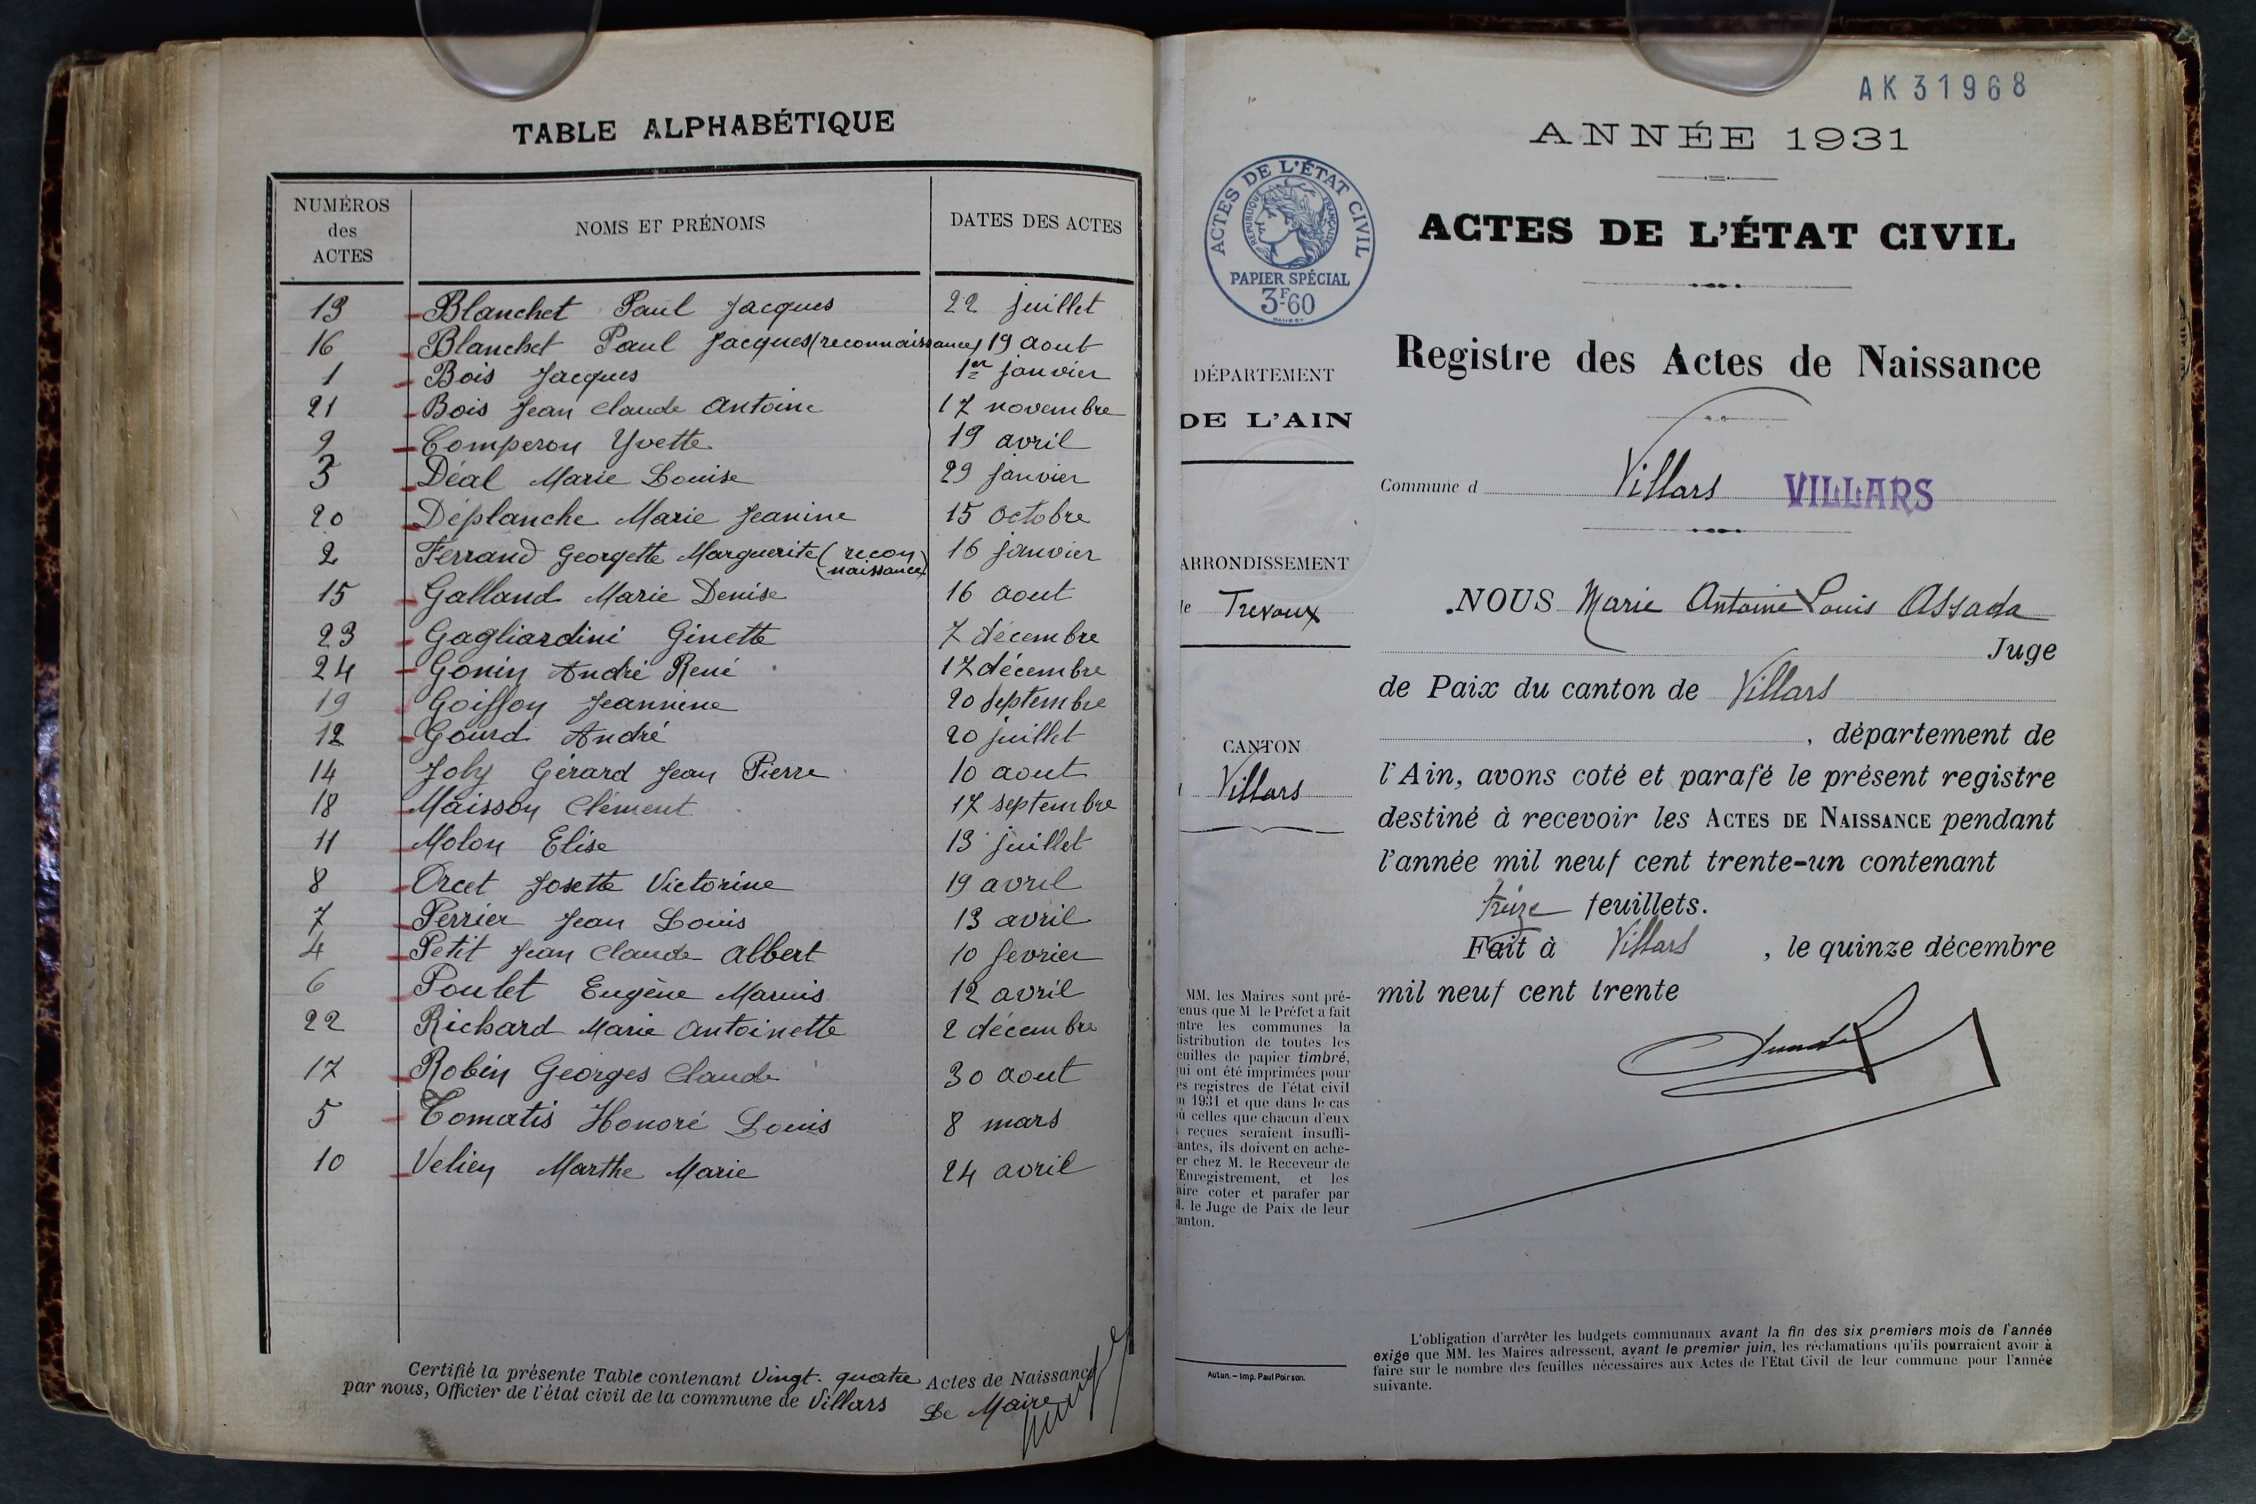 TABLE ALPHABÉTIQUE
NUMÉROS des ACTES NOMS ET PRÉNOMS DATES DES ACTES
13 Blanchet Paul Jacques 22 juillet
16 Blanchet Paul Jacques (reconnaissance) 19 aout
1 Bois Jacques 1er janvier
21 Bois Jean Claude Antoine 17 novembre
9 Comperon Yvette 19 avril
3 Déal Marie Louise 29 janvier
20 Déplanche Marie Jeanine 15 octobre
2 Ferrand Georgette Marguerite (recon 16 janvier
naissance)
15 Galland Marie Denise 16 aout
23 Gagliardini Ginette 7 décembre
24 Gonin André René 17 décembre
19 Goiffon Jeannine 20 septembre
12 Gourd André 20 juillet
14 Joly Gérard Jean Pierre 10 aout
18 Maisson Clément 17 septembre
11 Molon Elise 13 juillet
8 Orcet Josette Victorine 19 avril
7 Perrier Jean Louis 13 avril
4 Petit Jean Claude Albert 10 fevrier
6 Poulet Eugène Marius 12 avril
22 Richard Marie Antoinette 2 décembre
17 Robin Georges Claude 30 aout
5 Tomatis Honoré Louis 8 mars
10 Velien Marthe Marie 24 avril
Certifié la présente Table contenant Vingt-quatre Actes de Naissance
par nous, Officier de l'état civil de la commune de Villars
Le Maire
AK 31968
ANNÉE 1931
ACTES DE L'ÉTAT CIVIL
RÉPUBLIQUE FRANÇAISE
PAPIER SPÉCIAL
3F60
ACTES DE L'ÉTAT CIVIL
Registre des Actes de Naissance
DÉPARTEMENT
DE L'AIN
Commune d Villars VILLARS
ARRONDISSEMENT
le Trevoux
CANTON
Villars
MM. les Maires sont pré-
enus que M le Préfet a fait
ntre les communes la
istribution de toutes les
euilles de papier timbré,
ui ont été imprimées pour
es registres de l'état civil
n 1931 et que dans le cas
ù celles que chacun d'eux
reçues seraient insuffi-
antes, ils doivent en ache-
er chez M. le Receveur de
'Enregistrement, et les
aire coter et parafer par
. le Juge de Paix de leur
anton.
Autun. – Imp. Paul Poirson.
NOUS Marie Antoine Louis Assada
Juge
de Paix du canton de Villars
, département de
l'Ain, avons coté et parafé le présent registre
destiné à recevoir les ACTES DE NAISSANCE pendant
l'année mil neuf cent trente-un contenant
treize feuillets.
Fait à Villars , le quinze décembre
mil neuf cent trente
L'obligation d'arrêter les budgets communaux avant la fin des six premiers mois de l'année
exige que MM. les Maires adressent, avant le premier juin, les réclamations qu'ils pourraient avoir à
faire sur le nombre des feuilles nécessaires aux Actes de l'Etat Civil de leur commune pour l'année
suivante.